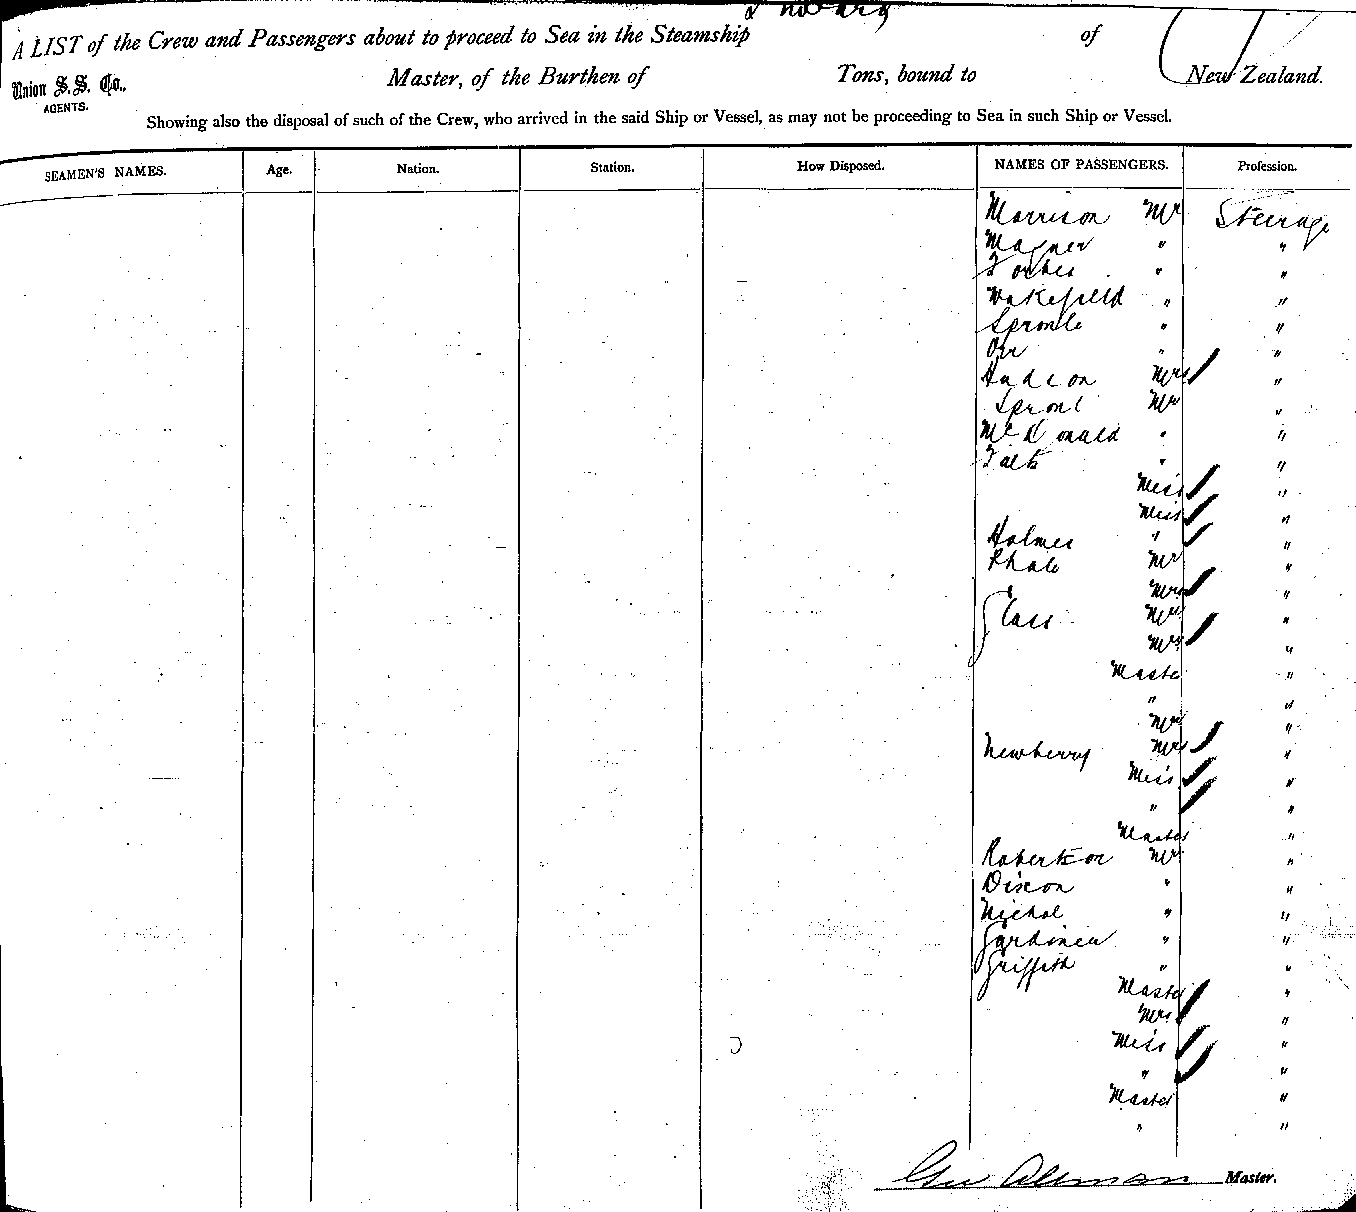 A LIST of the Crew and Passengers about to proceed to Sea in the Steamship of
Union S.S. Co., Master, of the Burthen of Tons, bound to New Zealand.
AGENTS.
Showing also the disposal of such of the Crew, who arrived in the said Ship or Vessel, as may not be proceeding to Sea in such Ship or Vessel.
SEAMEN'S NAMES. Age. Nation. Station. How Disposed. NAMES OF PASSENGERS. Profession.
Morrison Mr Steerage
Magner " "
Forbes " "
Wakefield " "
Sproule " "
Orr " "
Hudson Mrs "
Sproul Mr "
McDonald " "
" "
Miss "
Miss "
Holmes " "
Mr "
Mrs "
Glass Mr "
Mrs "
Master "
" "
Mr "
Newberry Mrs "
Miss "
" "
Master "
Robertson Mr "
Dixon " "
Nichol " "
Gardiner " "
Griffith " "
Master "
Mrs "
Miss "
" "
Master "
" "
Master.